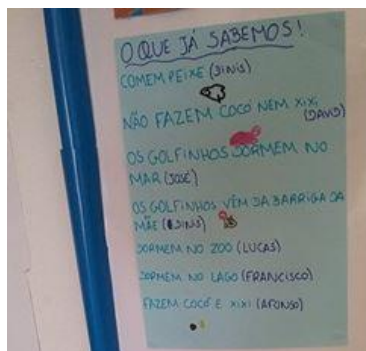 O QUE JÁ SABEMOS!
COMEM PEIXE (DINIS)
NÃO FAZEM COCÓ NEM XIXI
(DAVID)
OS GOLFINHOS DORMEM NO
MAR (JOSÉ)
OS GOLFINHOS VÊM DA BARRIGA DA
MÃE (DINIS)
DORMEM NO ZOO (LUCAS)
DORMEM NO LAGO (FRANCISCO)
FAZEM COCÓ E XIXI (AFONSO)